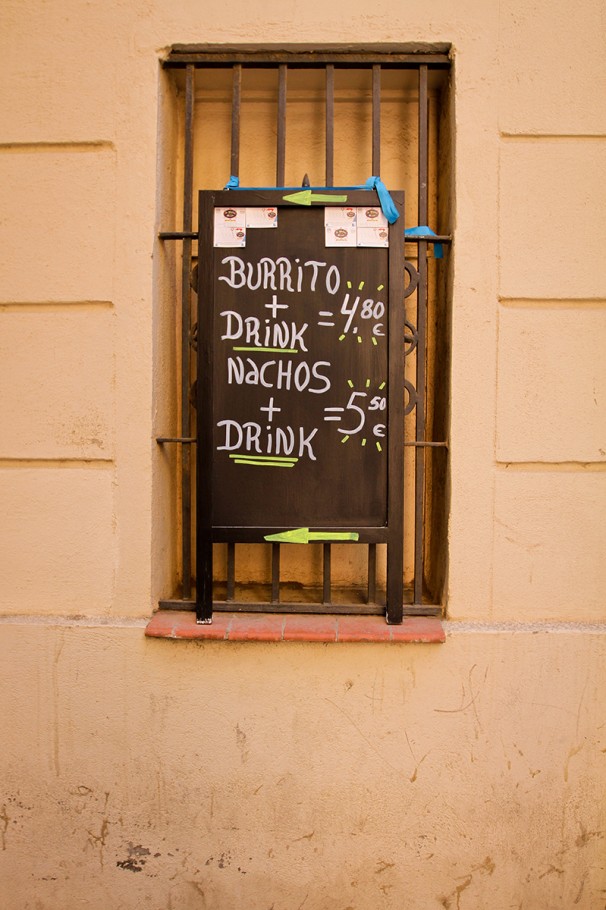 BURRiTO
+ = 4,80 €
DRiNK
NaCHOS
+ = 5 50 €
DRiNK